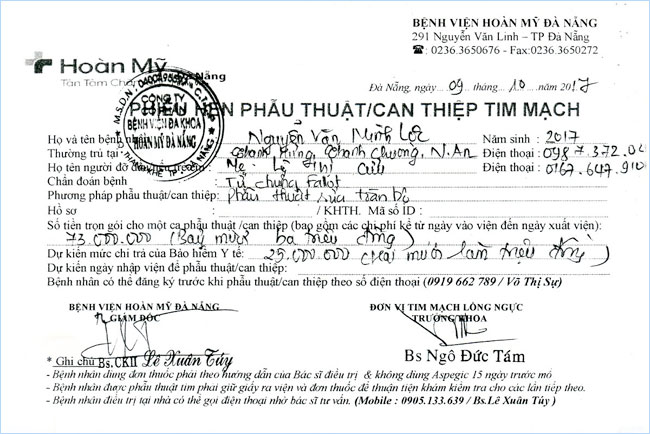 BỆNH VIỆN HOÀN MỸ ĐÀ NẴNG
291 Nguyễn Văn Linh – TP Đà Nẵng
☎: 0236.3650676 - Fax:0236.3650272
Hoàn Mỹ
Tận Tâm Đà Nẵng
Đà Nẵng, ngày 09 tháng 10 năm 2017
M.S.D.N: CÔNG TY CỔ PHẦN BỆNH VIỆN ĐA KHOA HOÀN MỸ ĐÀ NẴNG
PHIẾU HẸN PHẪU THUẬT/CAN THIỆP TIM MẠCH
Họ và tên bệnh Nguyễn Văn Minh Lộc Năm sinh : 2017
Thường trú tại Thanh Hưng, Thanh Chương, N.An Điện thoại : 0987.372.0
Họ tên người đỡ Mẹ: Lê Thị Điện thoại : 0167.647.910
Chẩn đoán bệnh Tứ chứng Fallot
Phương pháp phẫu thuật/can thiệp: phẫu thuật sửa toàn bộ
Hồ sơ : / KHTH. Mã số ID :
Số tiền trọn gói cho một ca phẫu thuật /can thiệp (bao gồm các chi phí kể từ ngày vào viện đến ngày xuất viện):
73.000.000 (Bảy mươi ba triệu đồng)
Dự kiến mức chi trả của Bảo hiểm Y tế: 25.000.000 (Hai mươi lăm triệu đồng)
Dự kiến ngày nhập viện để phẫu thuật/can thiệp:
Bệnh nhân có thể đăng ký trước khi phẫu thuật/can thiệp theo số điện thoại (0919 662 789 / Võ Thị Sự)
BỆNH VIỆN HOÀN MỸ ĐÀ NẴNG ĐƠN VỊ TIM MẠCH LỒNG NGỰC
GIÁM ĐỐC TRƯỞNG KHOA
* Ghi chú Bs.CKII Lê Xuân Túy Bs Ngô Đức Tám
- Bệnh nhân dùng đơn thuốc phải theo hướng dẫn của Bác sĩ điều trị & không dùng Aspegic 15 ngày trước mổ
- Bệnh nhân được phẫu thuật tim phải giữ giấy ra viện và đơn thuốc để thuận tiện khám kiểm tra cho các lần tiếp theo.
- Bệnh nhân điều trị tại nhà có thể gọi điện thoại nhờ bác sĩ tư vấn. (Mobile : 0905.133.639 / Bs.Lê Xuân Túy )